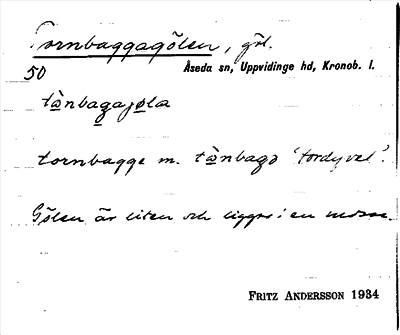 Tornbaggagölen, göl.
50 Åseda sn, Uppvidinge hd, Kronob. l.
tànbagajøla
tornbagge m. tànbagə 'tordyvel'.
Gölen är liten och ligger i en mosse.
FRITZ ANDERSSON 1934